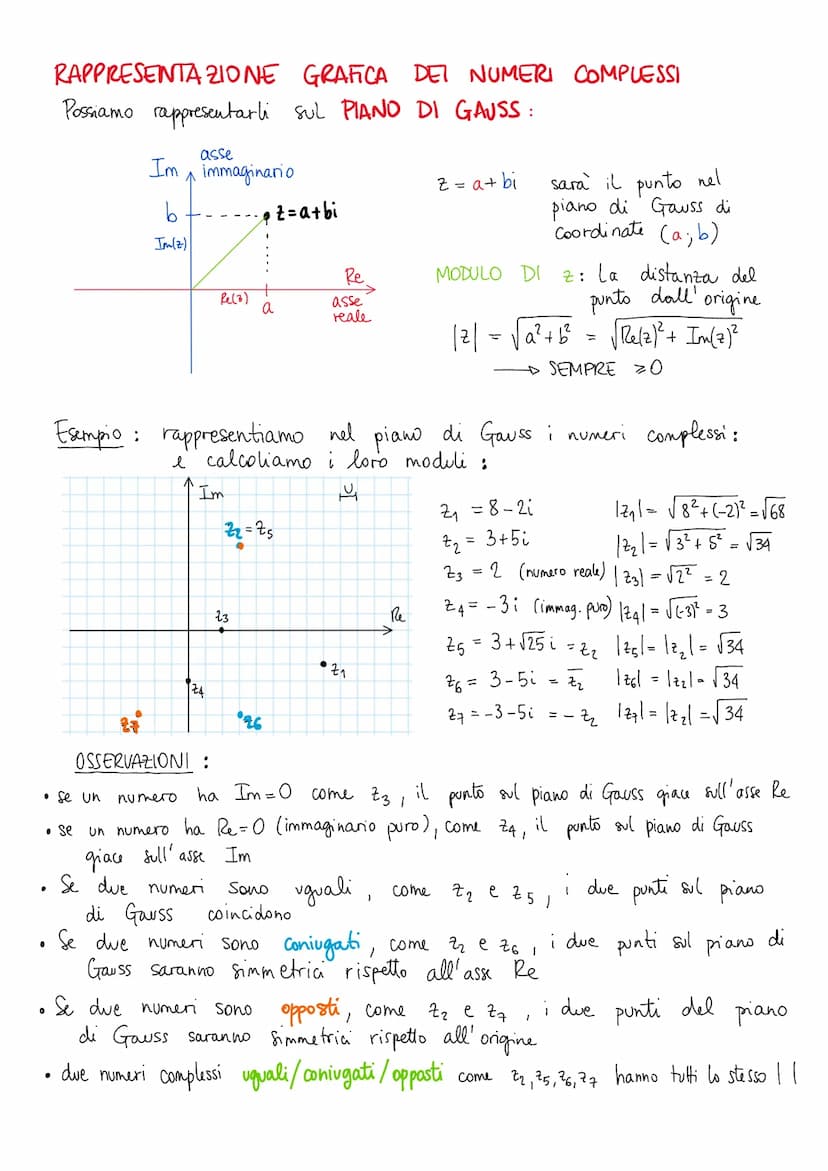 RAPPRESENTAZIONE GRAFICA DEI NUMERI COMPLESSI
Possiamo rappresentarli sul PIANO DI GAUSS :
Im asse immaginario
b
Im(z)
z=a+bi
Re(z)
a
Re
asse
reale
z = a + bi sarà il punto nel
piano di Gauss di
coordinate (a;b)
MODULO DI z : La distanza del
punto dall'origine
|z| = √(a²+b²) = √(Re(z)² + Im(z)²)
→ SEMPRE ≥0
Esempio : rappresentiamo nel piano di Gauss i numeri complessi :
e calcoliamo i loro moduli :
Im
u
z₂ = z₅
z₃
Re
z₁
z₄
z₇
z₆
z₁ = 8 - 2i |z₁| = √(8²+(-2)²) = √68
z₂ = 3+5i |z₂| = √(3²+5²) = √34
z₃ = 2 (numero reale) |z₃| = √2² = 2
z₄ = -3i (immag. puro) |z₄| = √(-3)² = 3
z₅ = 3+√25 i = z₂ |z₅| = |z₂| = √34
z₆ = 3-5i = z̅₂ |z₆| = |z₂| = √34
z₇ = -3-5i = -z₂ |z₇| = |z₂| = √34
OSSERVAZIONI :
• se un numero ha Im=0 come z₃, il punto sul piano di Gauss giace sull'asse Re
• se un numero ha Re=0 (immaginario puro), come z₄, il punto sul piano di Gauss
giace sull'asse Im
• Se due numeri sono uguali, come z₂ e z₅, i due punti sul piano
di Gauss coincidono
• Se due numeri sono coniugati, come z₂ e z₆, i due punti sul piano di
Gauss saranno simmetrici rispetto all'asse Re
• Se due numeri sono opposti, come z₂ e z₇, i due punti del piano
di Gauss saranno simmetrici rispetto all'origine
• due numeri complessi uguali/coniugati/opposti come z₂,z₅,z₆,z₇ hanno tutti lo stesso | |